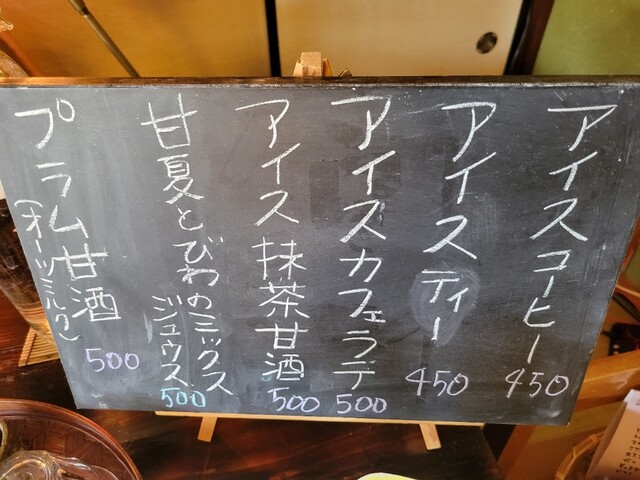 アイスコーヒー
450
アイスティー
450
アイスカフェラテ
500
アイス抹茶甘酒
500
甘夏とびわのミックス
ジュウス
500
プラム甘酒
(オーツミルク)
500